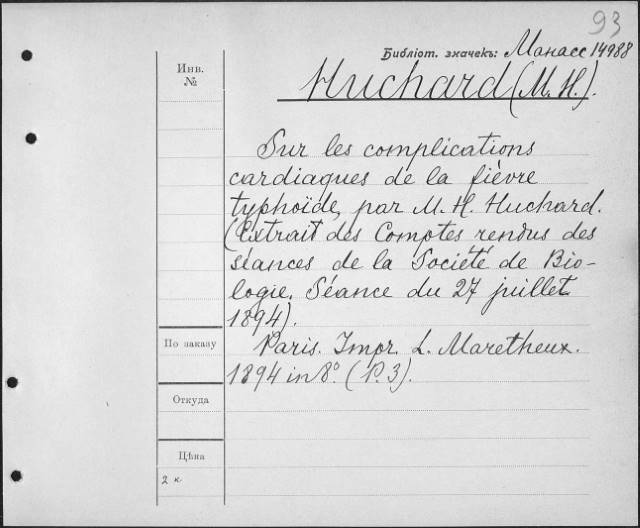 93
Библіот. значекъ: Манасс 14988
Инв.
№
Huchard (M. H.).
Sur les complications
cardiaques de la fièvre
typhoïde, par M. H. Huchard.
(Extrait des Comptes rendus des
séances de la Société de Bio-
logie. Séance du 27 juillet
1894).
По заказу
Paris. Impr. L. Maretheux.
1894 in 8º. (P. 3).
Откуда
Цѣна
2 к.